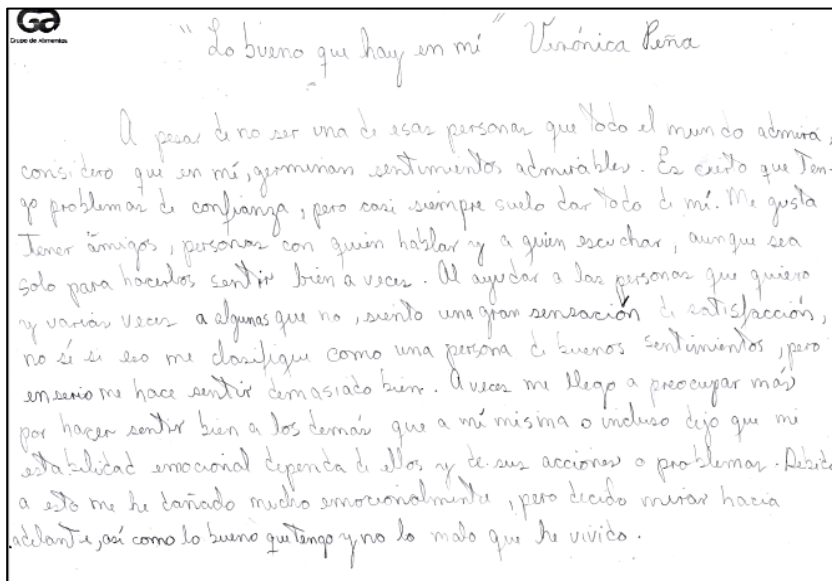 Ga
Grupo de Alimentos
"Lo bueno que hay en mí" Verónica Peña
A pesar de no ser una de esas personas que todo el mundo admira,
considero que en mí, germinan sentimientos admirables. Es cierto que Ten-
go problemas de confianza, pero casi siempre suelo dar todo de mí. Me gusta
Tener amigos, personas con quien hablar y a quien escuchar, aunque sea
solo para hacerlos sentir bien a veces. Al ayudar a las personas que quiero
y varias veces a algunas que no, siento una gran sensación de satisfacción,
no sé si eso me clasifique como una persona de buenos sentimientos, pero
en serio me hace sentir demasiado bien. A veces me llego a preocupar más
por hacer sentir bien a los demás que a mí misma o incluso dejo que mi
estabilidad emocional dependa de ellos y de sus acciones o problemas. Debido
a esto me he dañado mucho emocionalmente, pero decido mirar hacia
adelante, así como lo bueno que tengo y no lo malo que he vivido.